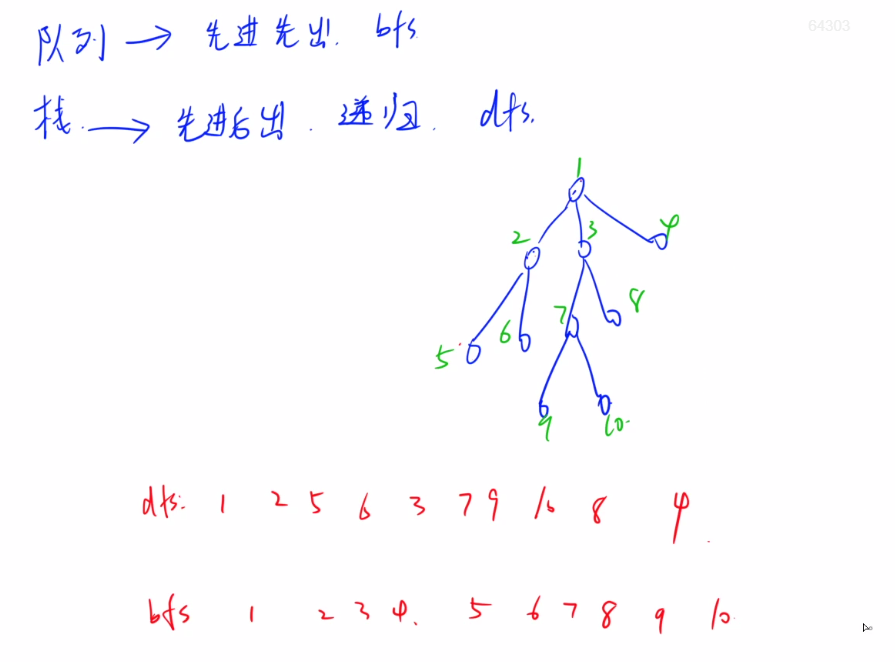 64303
队列 → 先进先出. bfs
栈. → 先进后出. 递归. dfs.
1
2 3 4
5 6 7 8
9 10.
dfs: 1 2 5 6 3 7 9 10 8 4.
bfs 1 2 3 4. 5 6 7 8 9 10